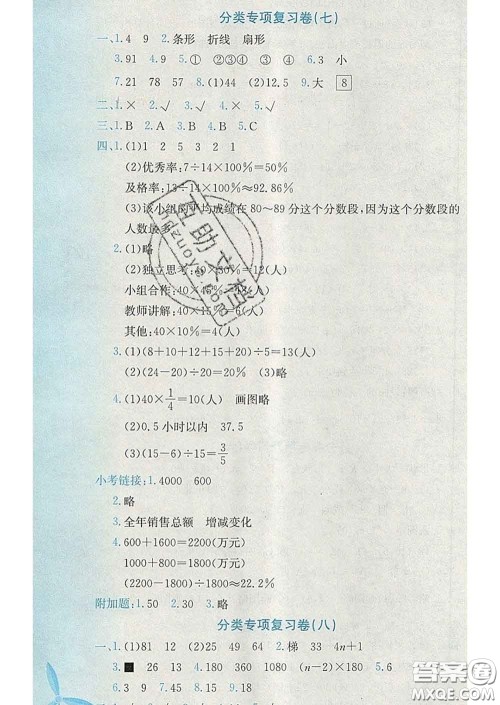 分类专项复习卷(七)
一、1.4 9 2.条形 折线 扇形
3.91 4.9 5.① ②③④ ③ ④ 6.3 小
7.21 78 57 8.(1)44 (2)12.5 9.大 8
二、1.× 2.√ 3.× 4.× 5.√
三、1.B 2.A 3.B 4.B 5.C
四、1.(1)1 2 5 3 2 1
(2)优秀率:7÷14×100%=50%
及格率:13÷14×100%≈92.86%
(3)该小组的平均成绩在80~89分这个分数段,因为这个分数段的
人数最多
2.(1)略
(2)独立思考:40×30%=12(人)
小组合作:40×45%=(人)
教师讲解:40×15%=6(人)
其他:40×10%=4(人)
3.(1)(8+10+12+15+20)÷5=13(人)
(2)(24-20)÷20=20% (3)略
4.(1)40×1/4=10(人) 画图略
(2)0.5小时以内 37.5
(3)(15-6)÷15=3/5
小考链接:1.4000 600
2.略
3.全年销售总额 增减变化
4.600+1600=2200(万元)
1000+800=1800(万元)
(2200-1800)÷1800≈22.2%
附加题:1.50 2.30 3.略
分类专项复习卷(八)
一、1.(1)81 12 (2)25 49 64 2.梯 33 4n+1
3.■ 26 13 4.180 360 1080 (n-2)×180 5.6
6.3 9 7.45 8.15 9.18
互助文档
hdzuoye.com
答案圈
MXQE.COM